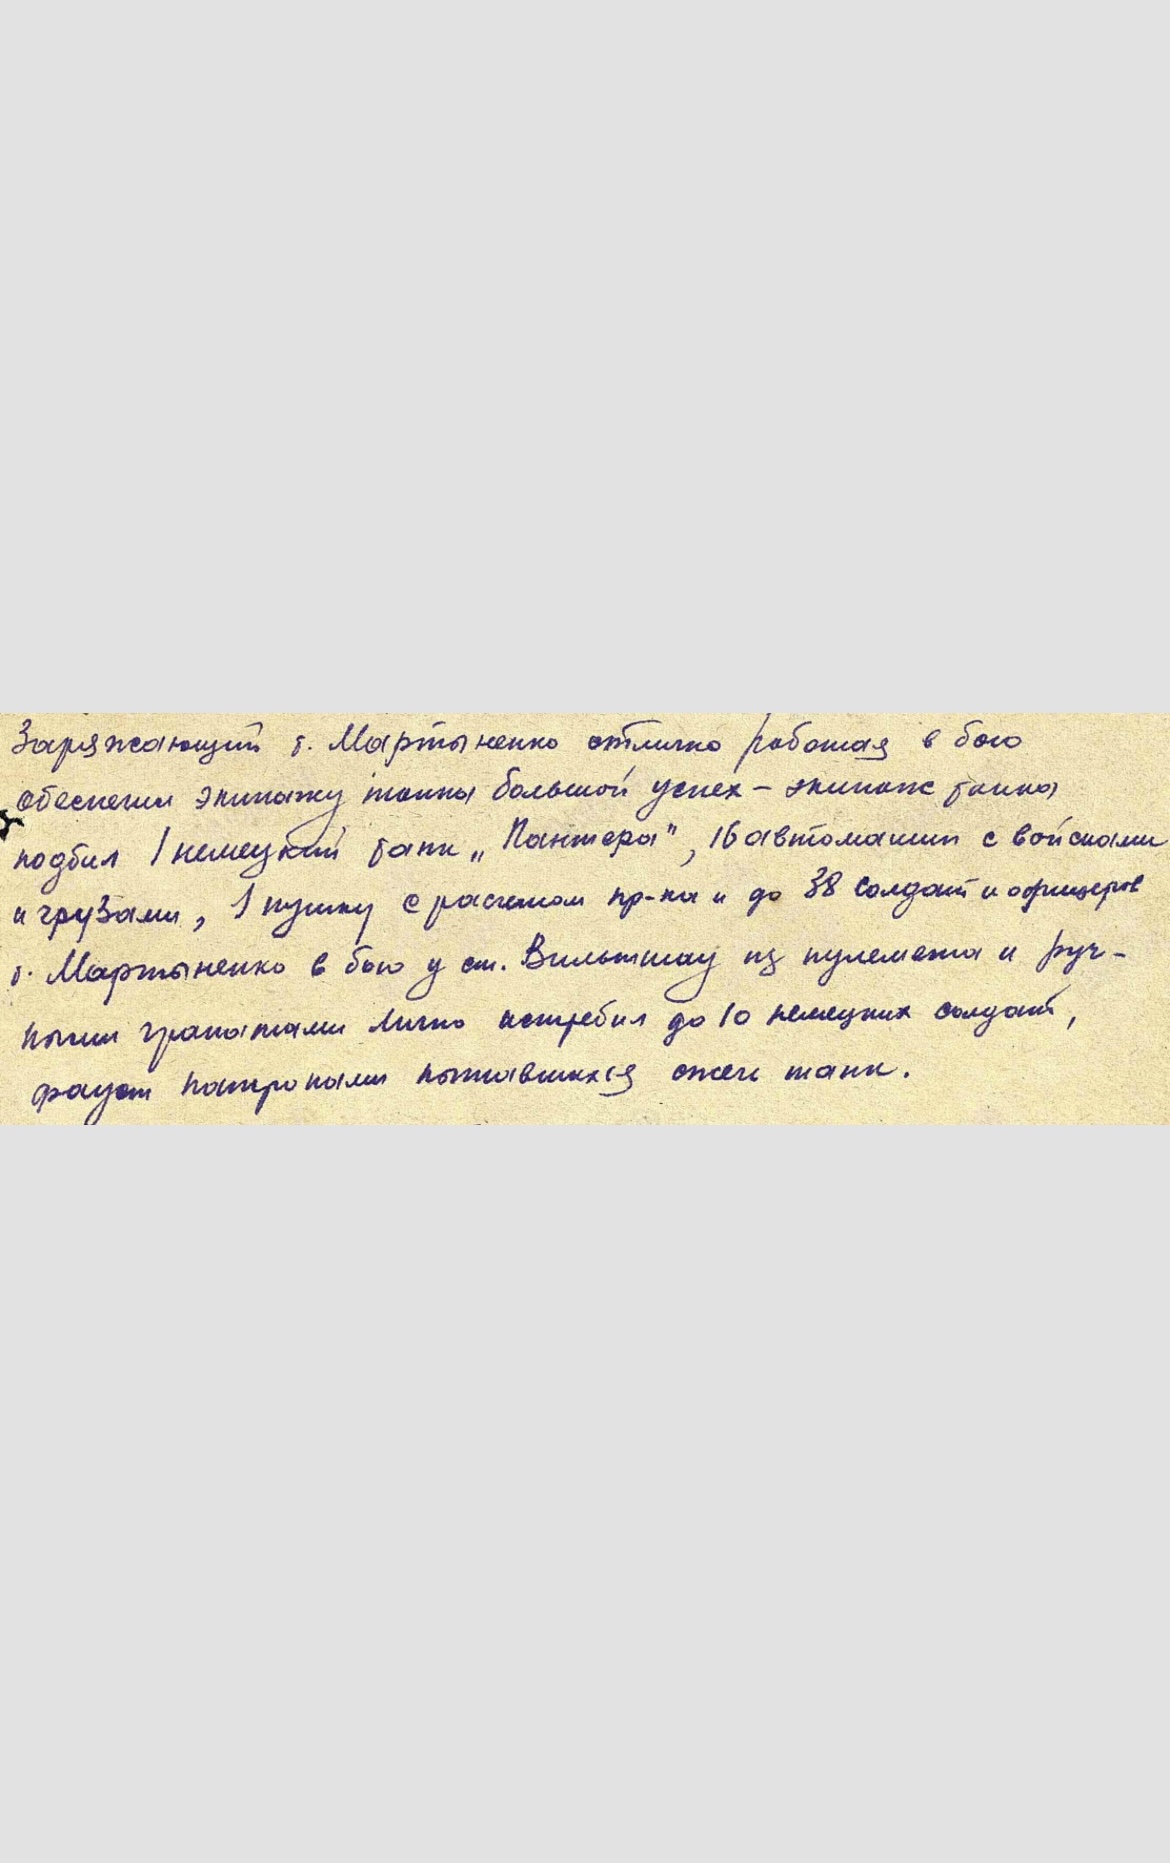 Заряжающий т. Мартыненко отлично работая в бою
обеспечил экипажу танка большой успех – экипаж танка
подбил 1 немецкий танк „Пантера", 16 автомашин с войсками
и грузами, 1 пушку с расчетом пр-ка и до 38 солдат и офицеров
т. Мартыненко в бою у ст. Вильтшау из пулемета и руч-
ными гранатами лично истребил до 10 немецких солдат,
фауст патронами пытавшихся сжечь танк.